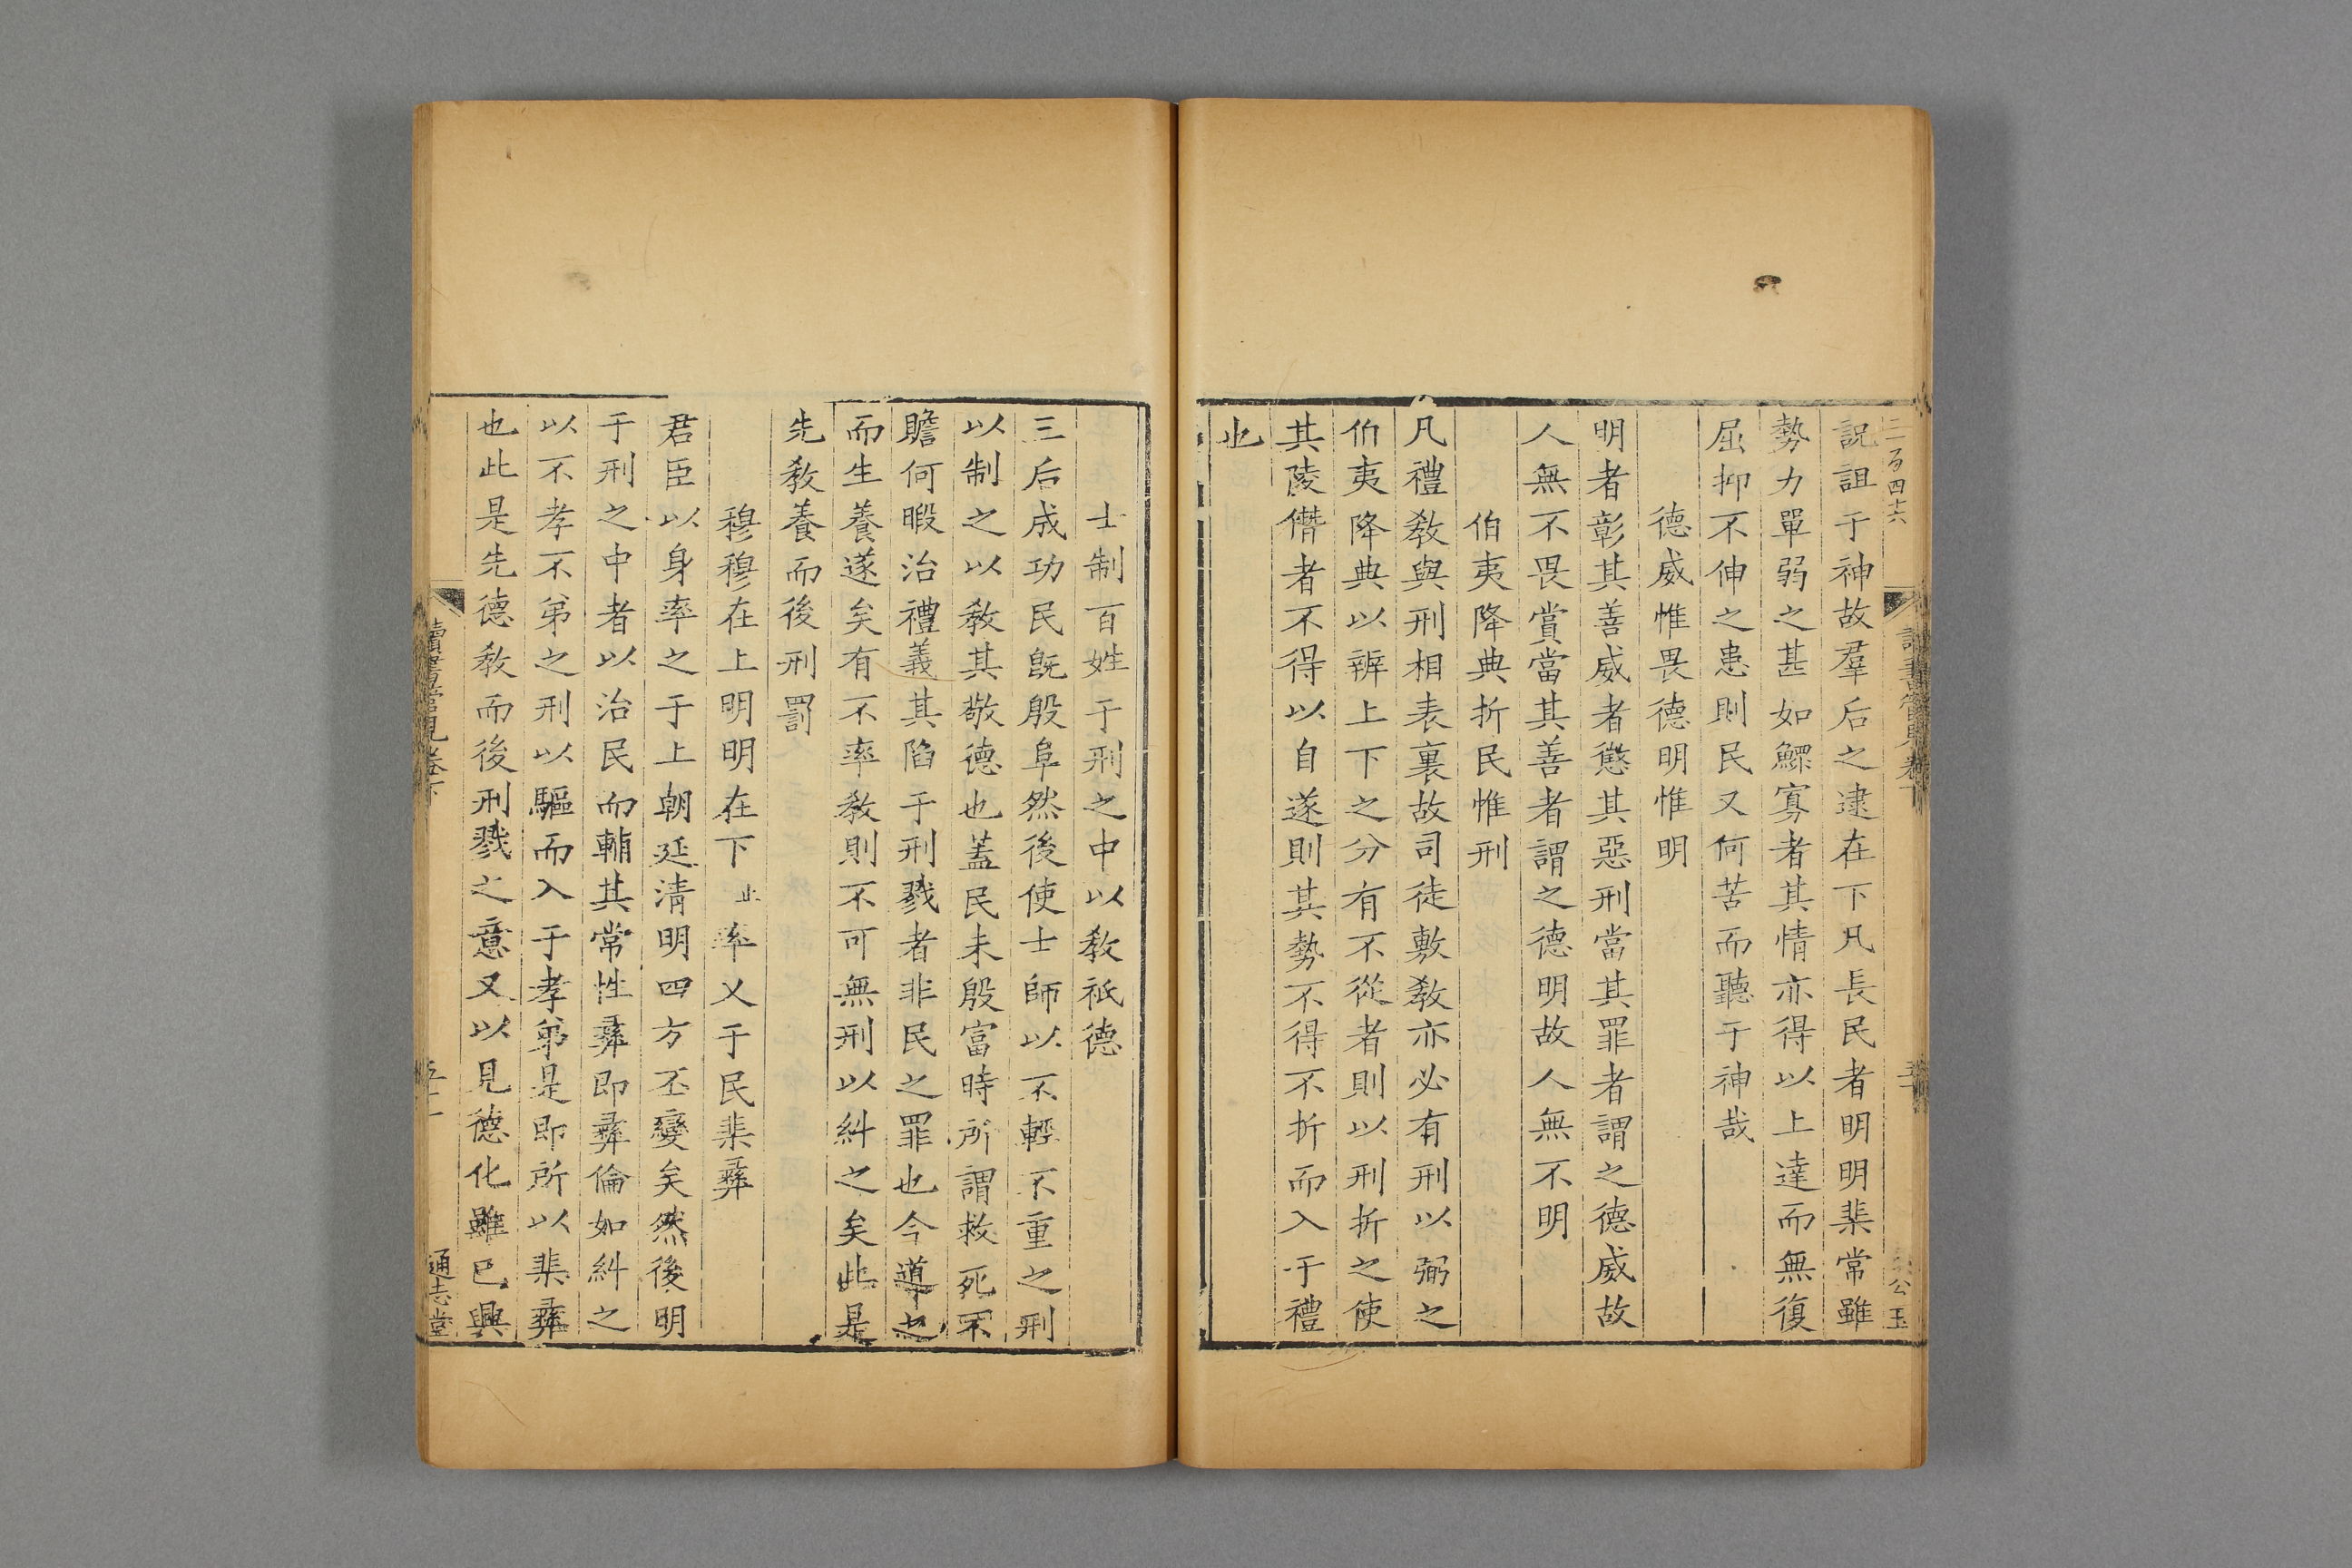 二百四十六
詋詛于神故羣后之逮在下凡長民者明明棐常雖
勢力單弱之甚如鰥寡者其情亦得以上達而無復
屈抑不伸之患則民又何苦而聽于神哉
德威惟畏德明惟明
明者彰其善威者懲其惡刑當其罪者謂之德威故
人無不畏賞當其善者謂之德明故人無不明
伯夷降典折民惟刑
凡禮教與刑相表裏故司徒敷教亦必有刑以弼之
伯夷降典以辨上下之分有不從者則以刑折之使
其陵僭者不得以自遂則其勢不得不折而入于禮
也
士制百姓于刑之中以教祗德
三后成功民旣殷阜然後使士師以不輕不重之刑
以制之以教其敬德也蓋民未殷富時所謂救死不
贍何暇治禮義其陷于刑戮者非民之罪也今導之
而生養遂矣有不率教則不可無刑以糾之矣此是
先教養而後刑罰
穆穆在上明明在下止率乂于民棐彝
君臣以身率之于上朝廷清明四方丕變矣然後明
于刑之中者以治民而輔其常性彝即彝倫如糾之
以不孝不弟之刑以驅而入于孝弟是即所以棐彝
也此是先德教而後刑戮之意又以見德化雖已興
讀書管見卷下
通志堂